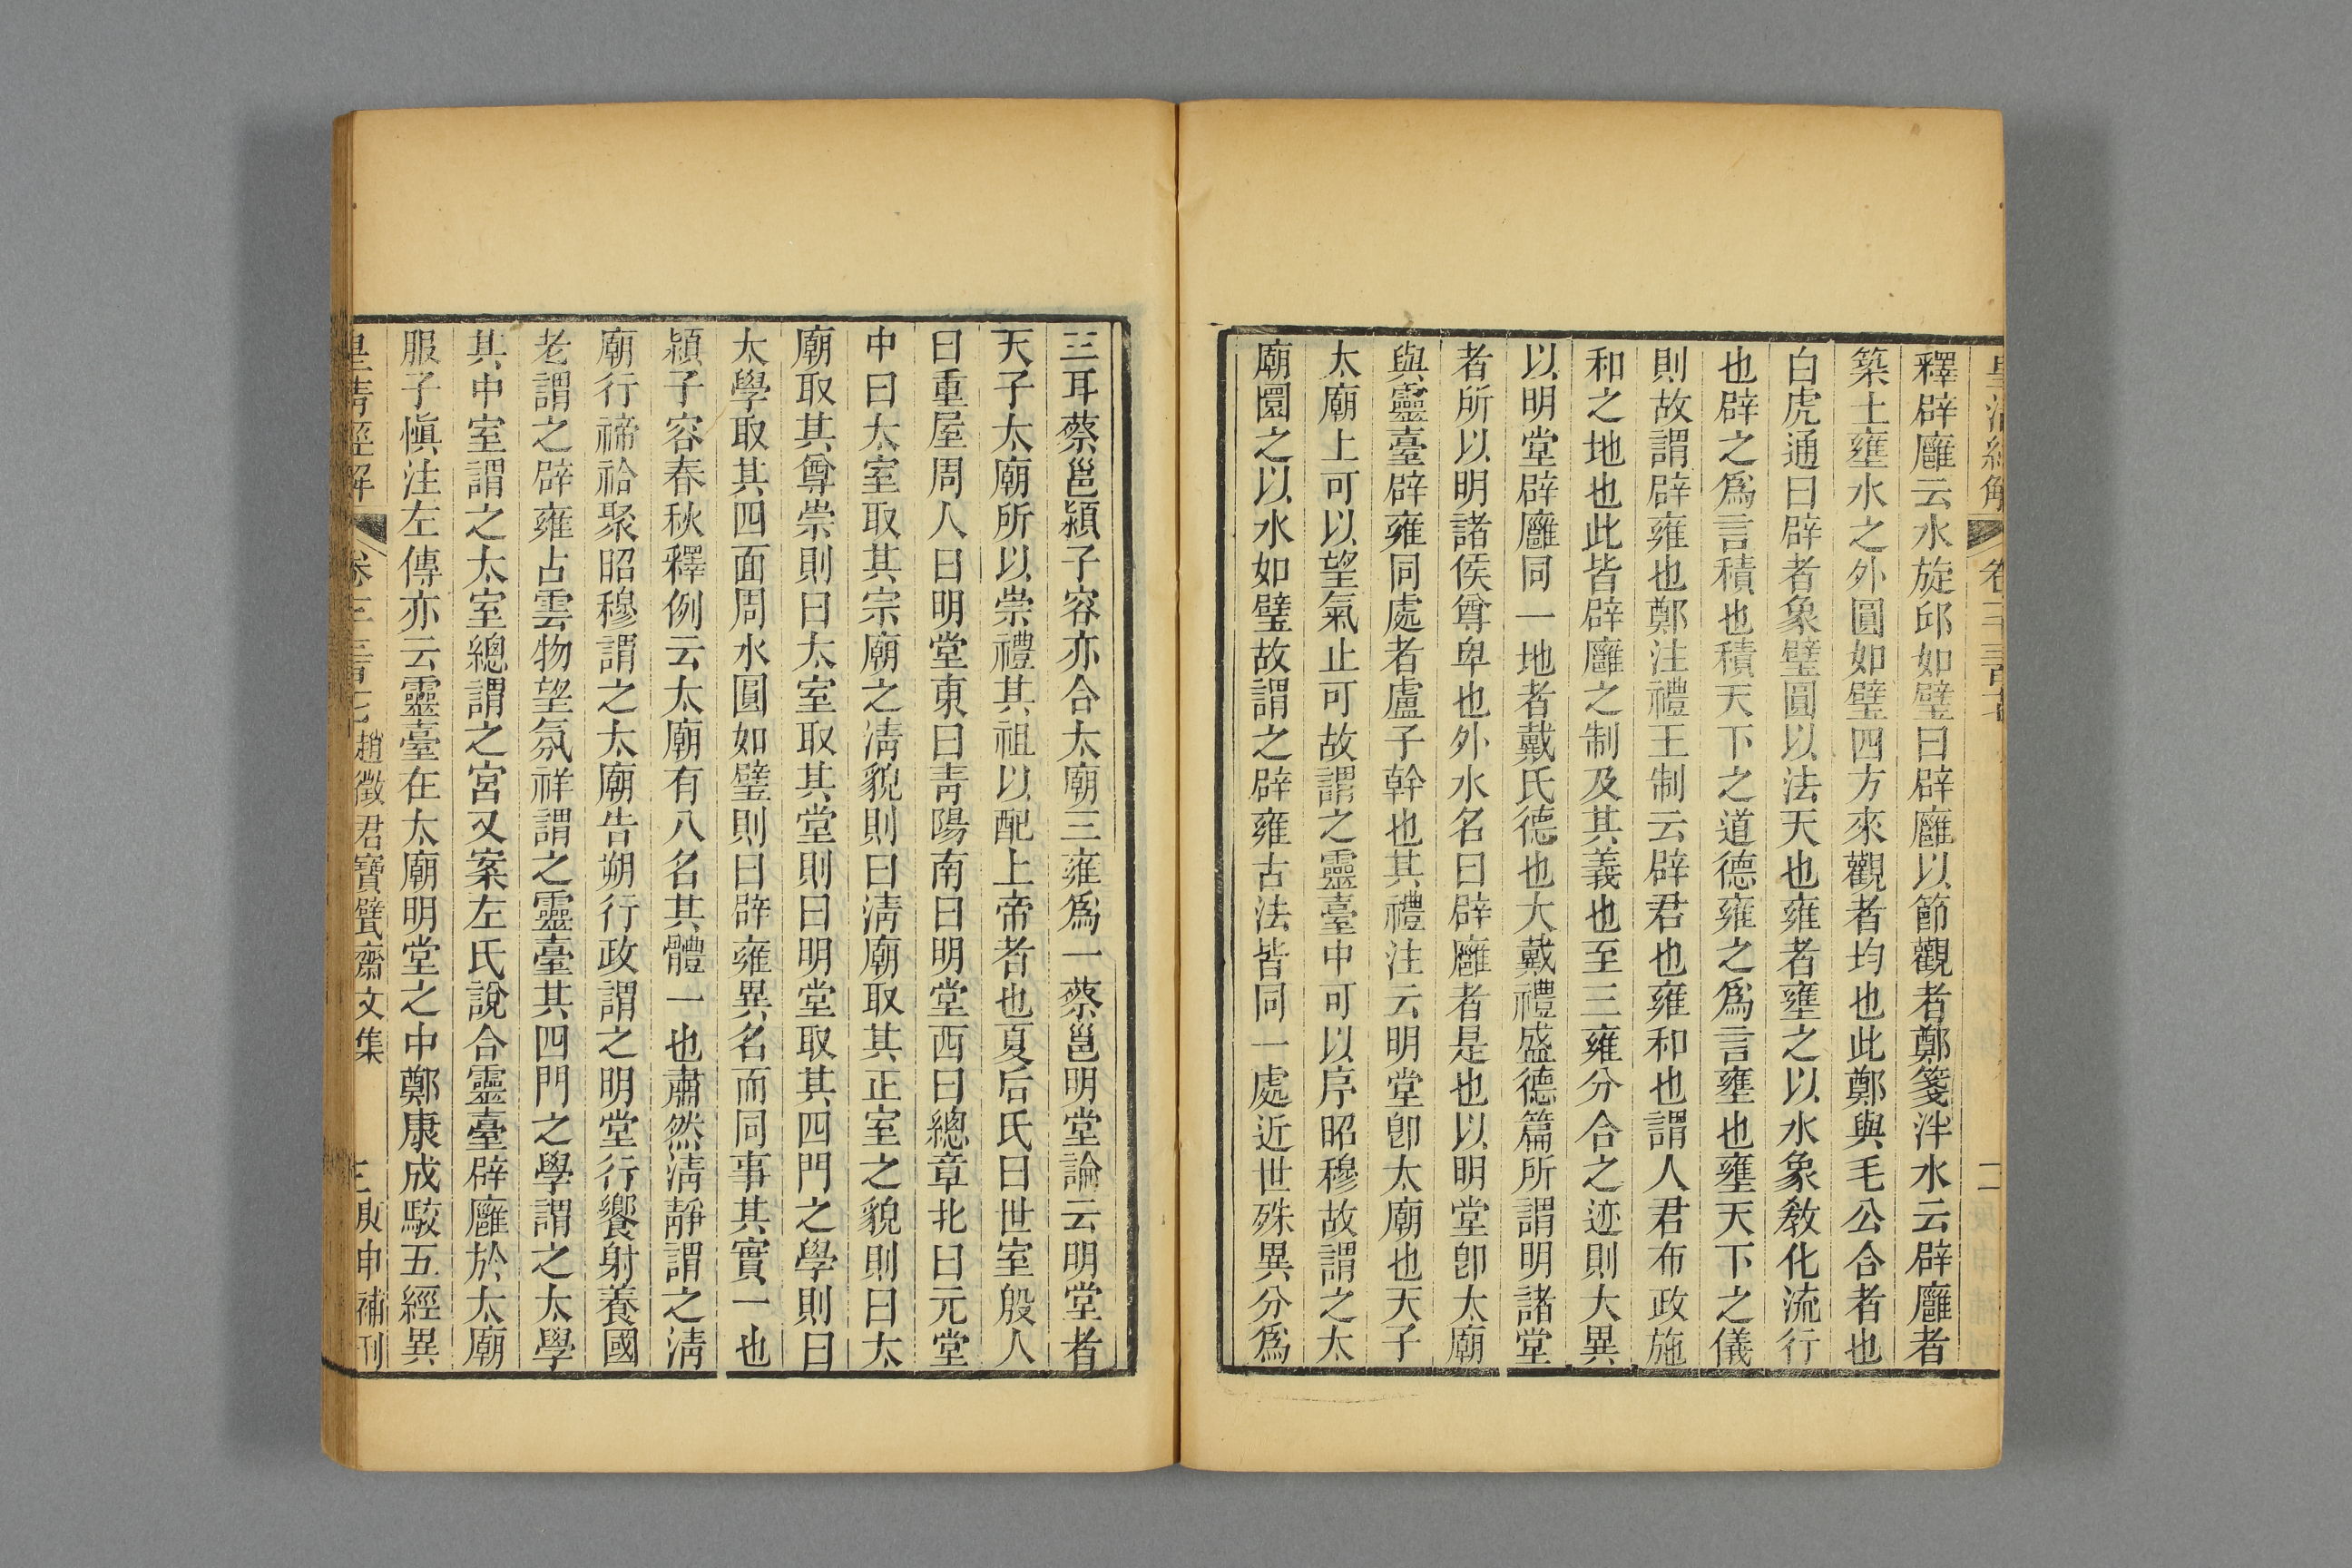 釋辟廱云水旋邱如璧曰辟廱以節觀者鄭箋泮水云辟廱者
築土壅水之外圓如璧四方來觀者均也此鄭與毛公合者也
白虎通曰辟者象璧圓以法天也雍者壅之以水象敎化流行
也辟之爲言積也積天下之道德雍之爲言壅也壅天下之儀
則故謂辟雍也鄭注禮王制云辟君也雍和也謂人君布政施
和之地也此皆辟廱之制及其義也至三雍分合之迹則大異
以明堂辟廱同一地者戴氏德也大戴禮盛德篇所謂明諸堂
者所以明諸侯尊卑也外水名曰辟廱者是也以明堂卽太廟
與靈臺辟雍同處者盧子幹也其禮注云明堂卽太廟也天子
太廟上可以望氣止可故謂之靈臺中可以序昭穆故謂之太
廟圜之以水如璧故謂之辟雍古法皆同一處近世殊異分爲
三耳蔡邕潁子容亦合太廟三雍爲一蔡邕明堂論云明堂者
天子太廟所以崇禮其祖以配上帝者也夏后氏曰世室殷人
曰重屋周人曰明堂東曰靑陽南曰明堂西曰總章北曰元堂
中曰太室取其宗廟之淸貌則曰淸廟取其正室之貌則曰太
廟取其尊崇則曰太室取其堂則曰明堂取其四門之學則曰
太學取其四面周水圓如璧則曰辟雍異名而同事其實一也
潁子容春秋釋例云太廟有八名其體一也肅然淸靜謂之淸
廟行禘祫聚昭穆謂之太廟告朔行政謂之明堂行饗射養國
老謂之辟雍占雲物望氛祥謂之靈臺其四門之學謂之太學
其中室謂之太室總謂之宮又案左氏說合靈臺辟廱於太廟
服子愼注左傳亦云靈臺在太廟明堂之中鄭康成駁五經異
皇淸經解 卷 趙徵君寶甓齋文集 三 庚申補刊